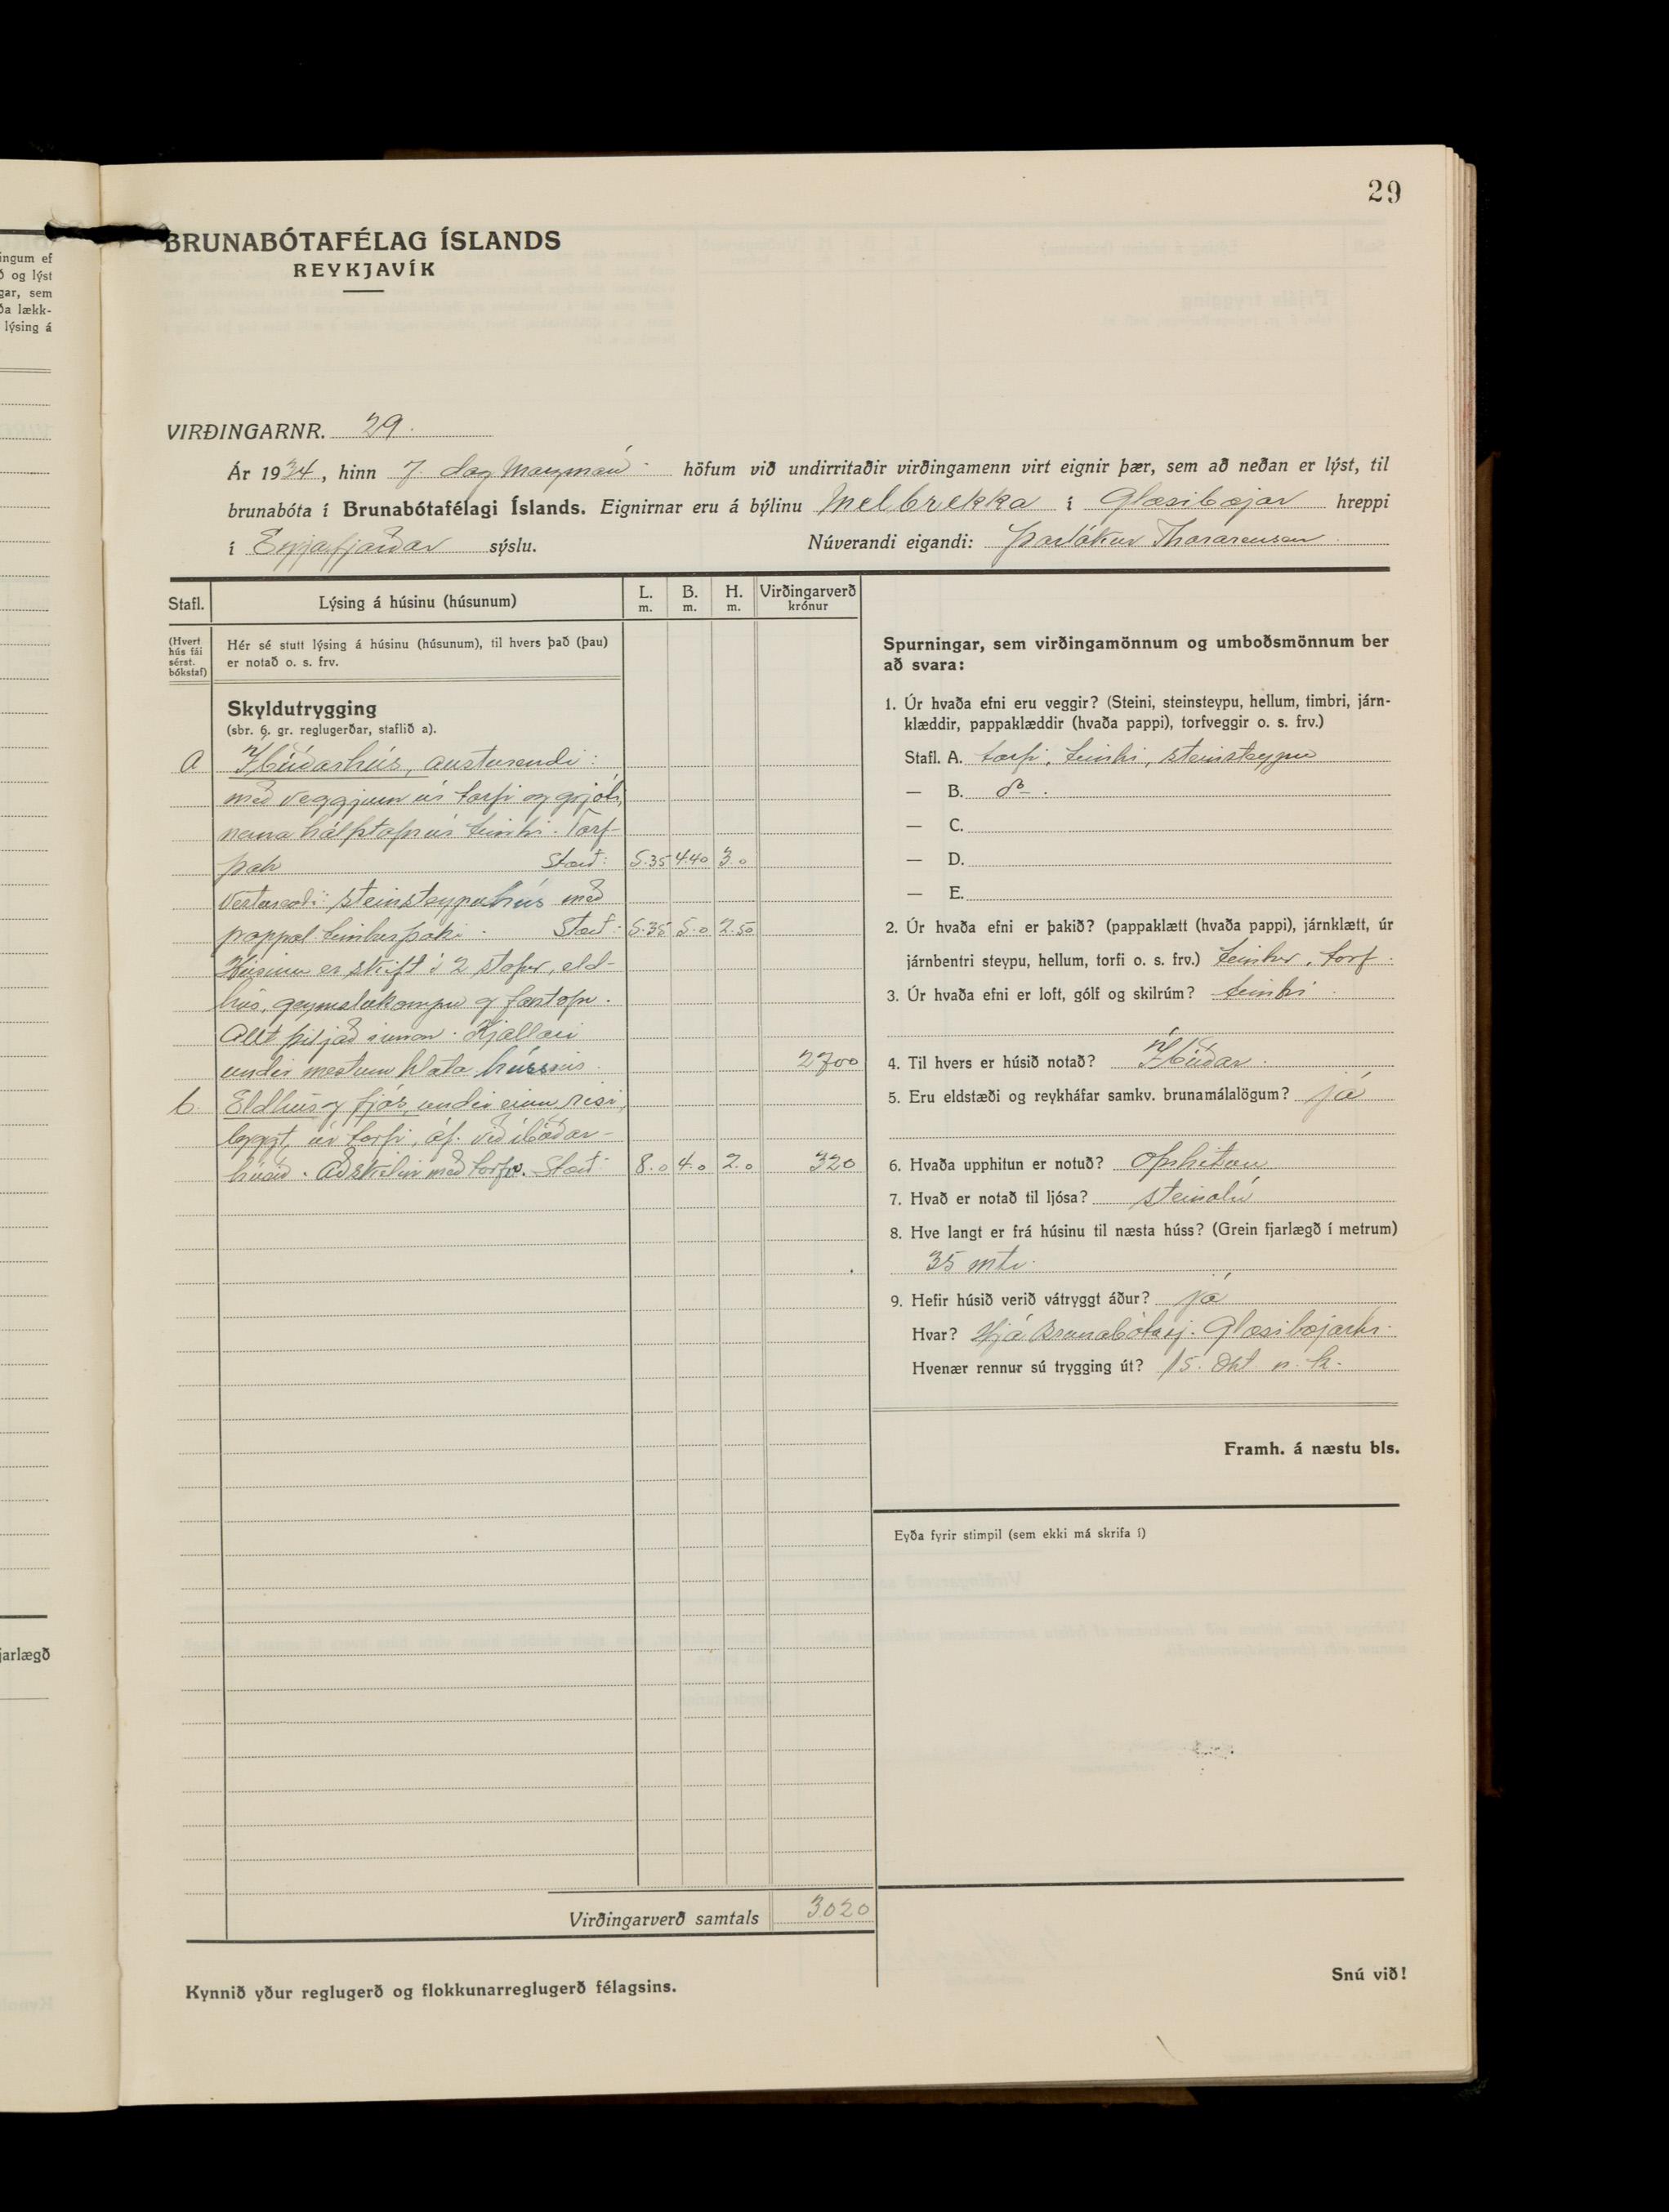 29
BRUNABÓTAFÉLAG ÍSLANDS
REYKJAVÍK
VIRÐINGARNR. 29.
Ár 1934, hinn 7. dag Marzmán höfum við undirritaðir virðingamenn virt eignir þær, sem að neðan er lýst, til
brunabóta í Brunabótafélagi Íslands. Eignirnar eru á býlinu Melbrekka í Glæsibæjar hreppi
í Eyjafjarðar sýslu. Núverandi eigandi: Þorlákur Thorarensen
Stafl. Lýsing á húsinu (húsunum) L. m. B. m. H. m. Virðingarverð krónur
(Hvert hús fái sérst. bókstaf)
Hér sé stutt lýsing á húsinu (húsunum), til hvers það (þau)
er notað o. s. frv.
Skyldutrygging
(sbr. 6. gr. reglugerðar, staflið a).
a Íbúðarhús, austurendi:
með veggjum úr torfi og grjóti,
nema hálfstafn úr timbri. Torf-
þak Stærð: 5.35 4.40 3.0
Vesturendi: steinsteypuhús með
pappal. timburþaki. Stærð: 5.35 5.0 2.50
Húsinu er skift í 2 stofur, eld-
hús, geymslukompu og forstofu.
Allt þiljað innan. Kjallari
undir mestum hluta hússins. 2700
b. Eldhús og fjós, undir einu risi,
byggt úr torfi, áf. við íbúðar-
húsið. Aðskilin með torfv. Stærð: 8.0 4.0 2.0 320
Virðingarverð samtals 3020
Kynnið yður reglugerð og flokkunarreglugerð félagsins.
Spurningar, sem virðingamönnum og umboðsmönnum ber
að svara:
1. Úr hvaða efni eru veggir? (Steini, steinsteypu, hellum, timbri, járn-
klæddir, pappaklæddir (hvaða pappi), torfveggir o. s. frv.)
Stafl. A. torfi, timbri, steinsteypu
— B. do.
— C.
— D.
— E.
2. Úr hvaða efni er þakið? (pappaklætt (hvaða pappi), járnklætt, úr
járnbentri steypu, hellum, torfi o. s. frv.) timbur, torf.
3. Úr hvaða efni er loft, gólf og skilrúm? timbri.
4. Til hvers er húsið notað? Íbúðar.
5. Eru eldstæði og reykháfar samkv. brunamálalögum? já
6. Hvaða upphitun er notuð? Ofnhitun
7. Hvað er notað til ljósa? steinolía
8. Hve langt er frá húsinu til næsta húss? (Grein fjarlægð í metrum)
35 mtr.
9. Hefir húsið verið vátryggt áður? já
Hvar? Hjá Brunabótasj. Glæsibæjarhr.
Hvenær rennur sú trygging út? 15. Okt n. k.
Framh. á næstu bls.
Eyða fyrir stimpil (sem ekki má skrifa í)
Snú við!
ingum ef
ð og lýst
gar, sem
ða lækk-
lýsing á
jarlægð